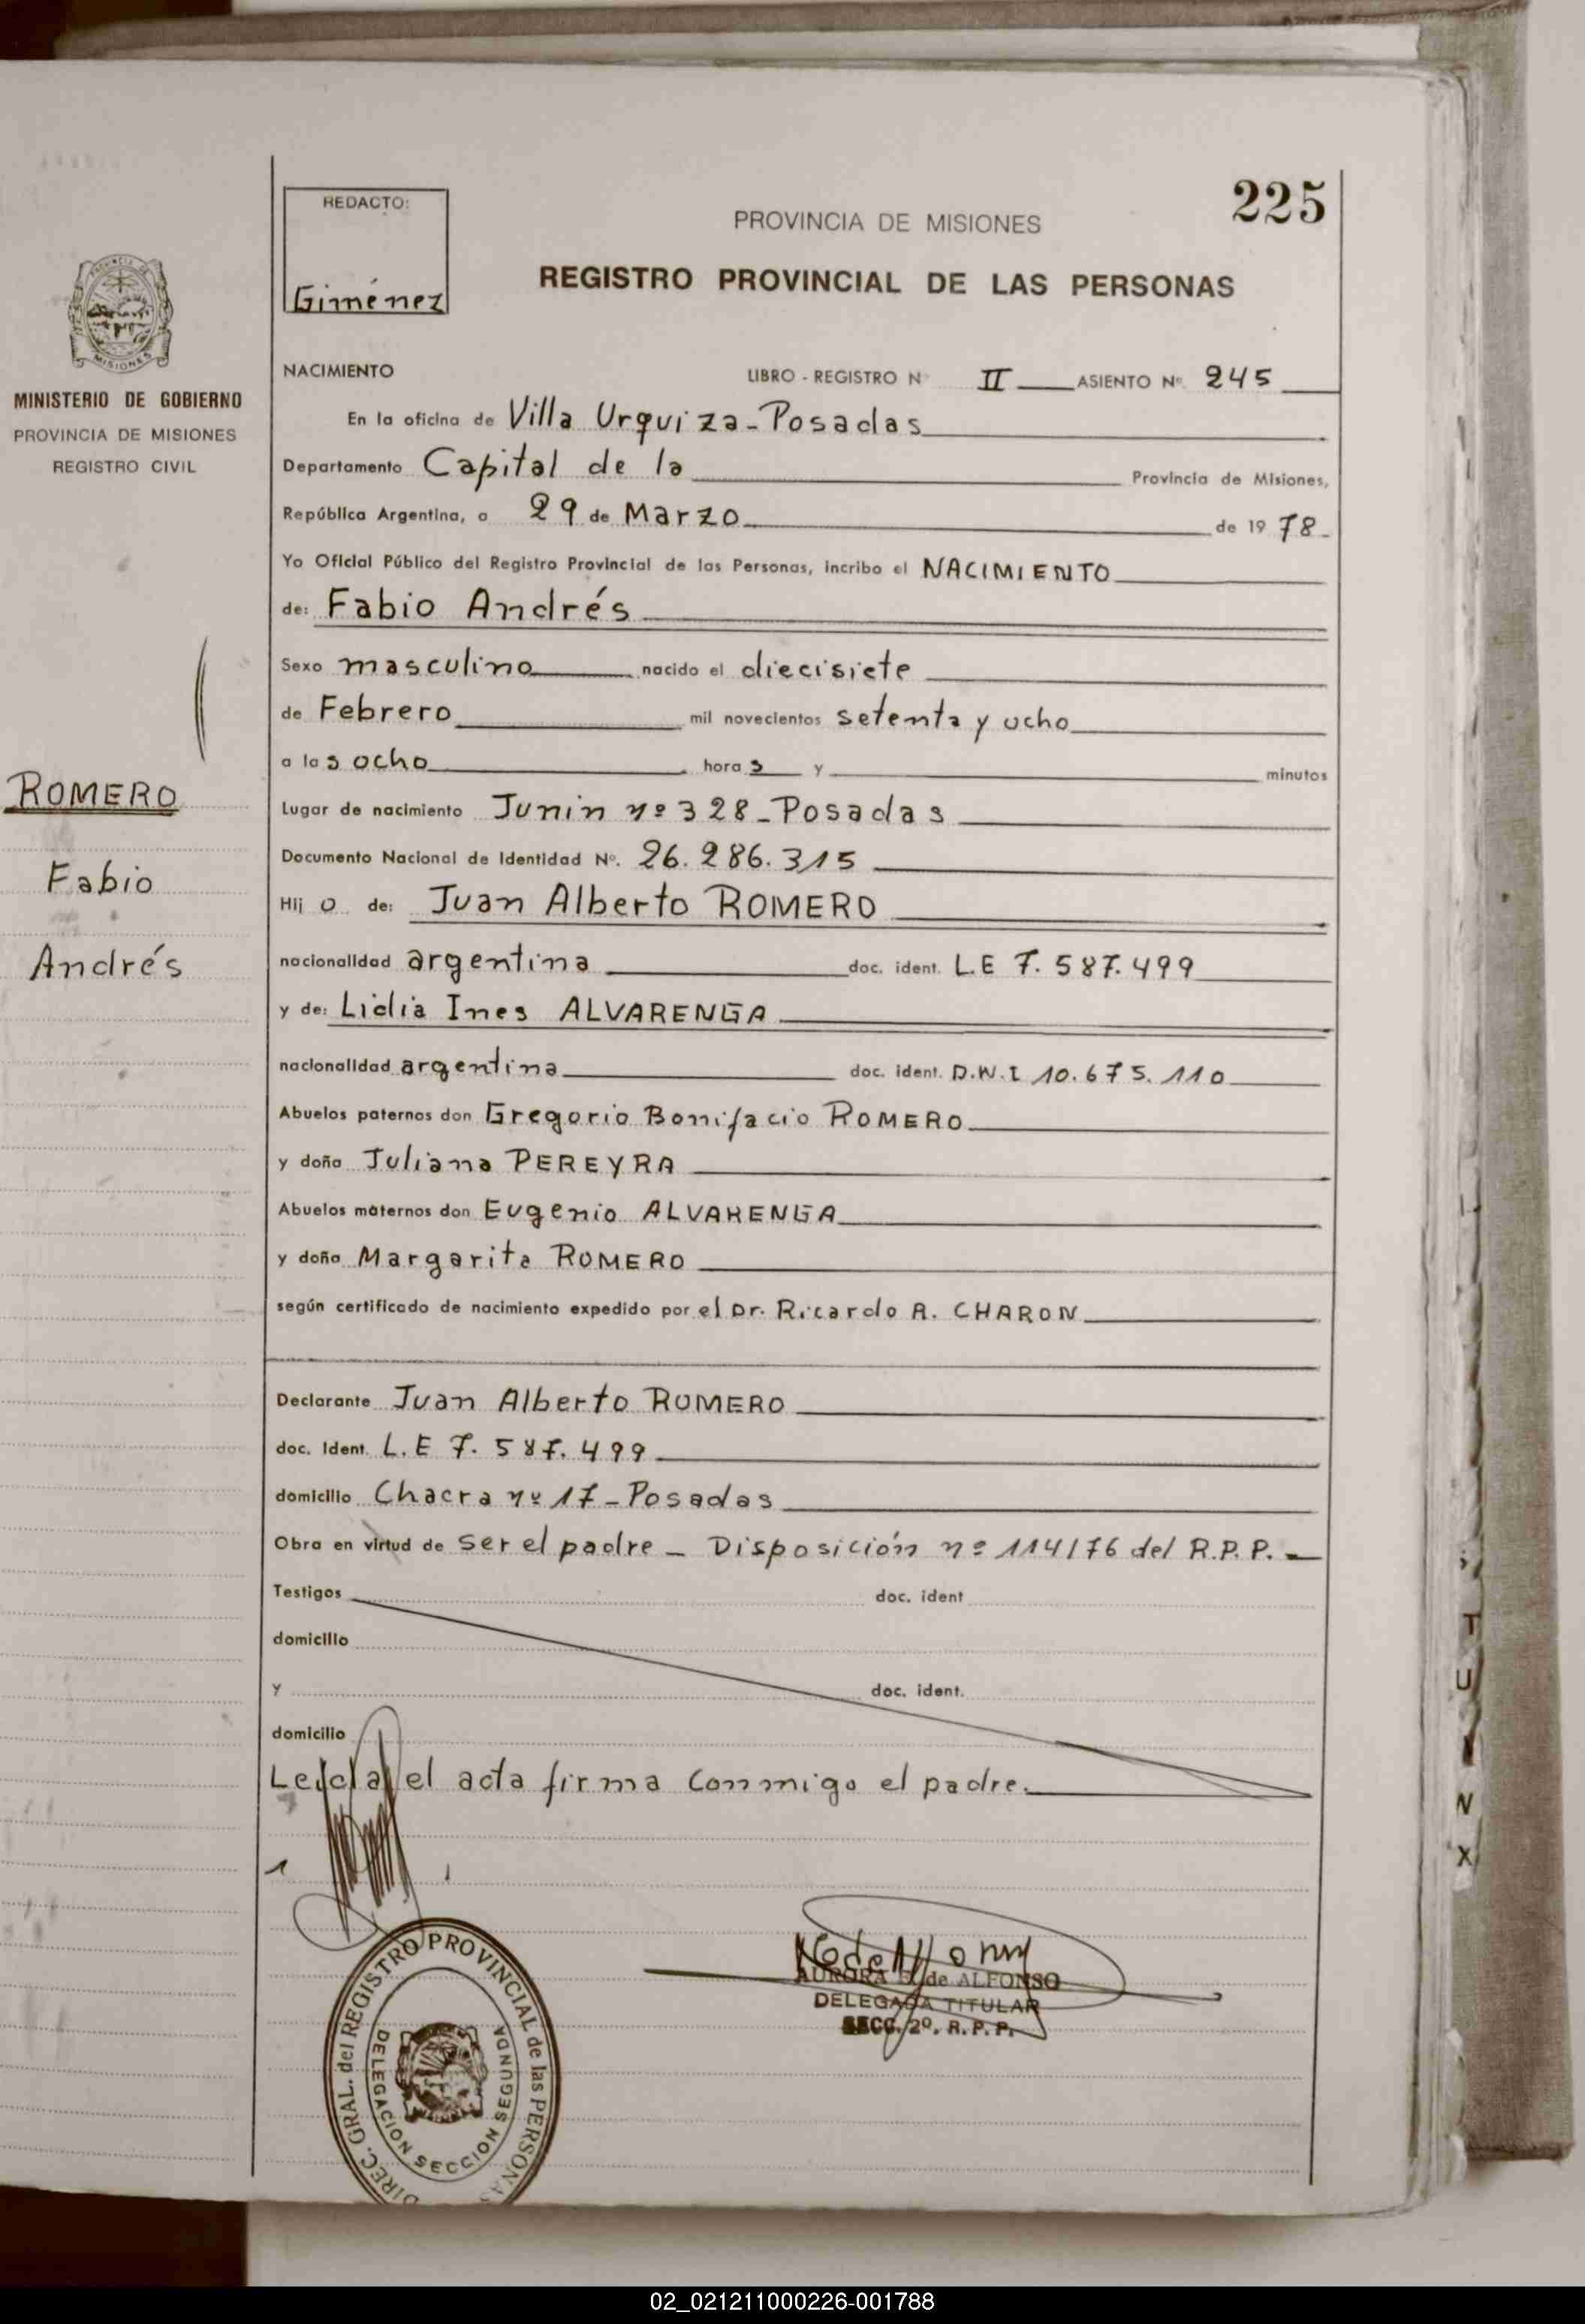 225
REDACTO:
Giménez
PROVINCIA DE MISIONES
REGISTRO PROVINCIAL DE LAS PERSONAS
MISIONES
MINISTERIO DE GOBIERNO
PROVINCIA DE MISIONES
REGISTRO CIVIL
ROMERO
Fabio
Andrés
NACIMIENTO LIBRO - REGISTRO Nº II ASIENTO Nº 245
En la oficina de Villa Urquiza - Posadas
Departamento Capital de la Provincia de Misiones,
República Argentina, a 29 de Marzo de 1978-
Yo Oficial Público del Registro Provincial de las Personas, incribo el NACIMIENTO
de: Fabio Andrés
Sexo masculino nacido el diecisiete
de Febrero mil novecientos setenta y ocho
a las ocho horas y minutos
Lugar de nacimiento Junin nº 328 - Posadas
Documento Nacional de Identidad Nº. 26.286.315
Hijo de: Juan Alberto ROMERO
nacionalidad argentina doc. ident. L.E 7.587.499
y de: Lidia Ines ALVARENGA
nacionalidad argentina doc. ident. D.N.I 10.675.110
Abuelos paternos don Gregorio Bonifacio ROMERO
y doña Juliana PEREYRA
Abuelos maternos don Eugenio ALVARENGA
y doña Margarita ROMERO
según certificado de nacimiento expedido por el Dr. Ricardo A. CHARON
Declarante Juan Alberto ROMERO
doc. Ident. L.E 7.587.499
domicilio Chacra nº 17 - Posadas
Obra en virtud de ser el padre - Disposición nº 114/76 del R.P.P. -
Testigos doc. ident
domicilio
y doc. ident.
domicilio
Leída el acta firma conmigo el padre.
AURORA de ALFONSO
DELEGADA TITULAR
SECC. 2º. R.P.P.
DIREC. GRAL. del REGISTRO PROVINCIAL de las PERSONAS
DELEGACION SECCION SEGUNDA
T
U
N
X
02_021211000226-001788